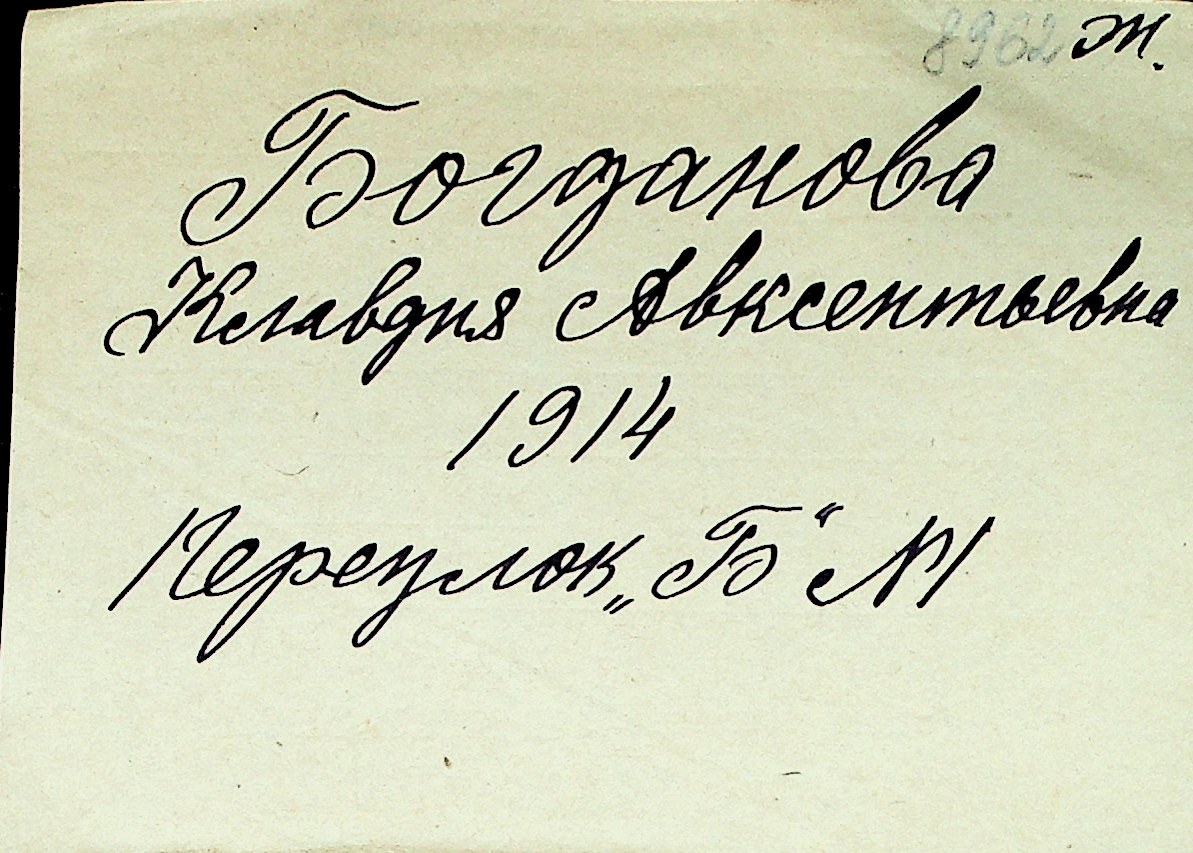 8962 Ж.
Богданова
Клавдия Авксентьевна
1914
Переулок „Б“ №1